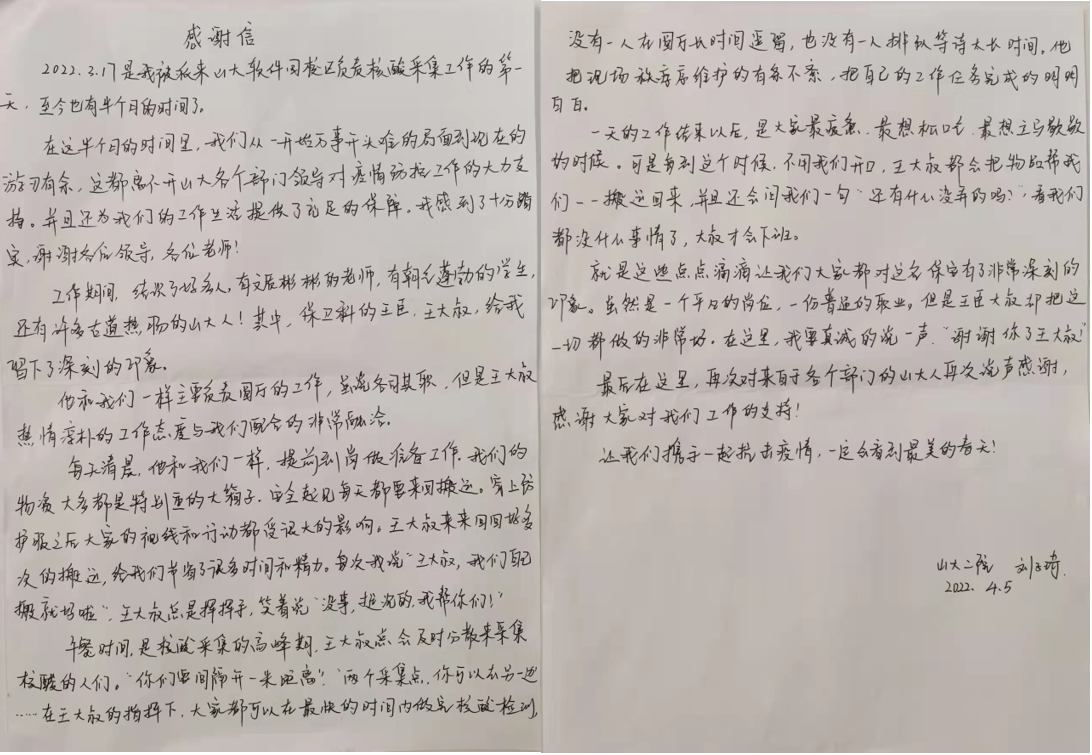 感谢信
2022.3.17是我被派来山大软件园校区负责核酸采集工作的第一
天，至今也有半个月的时间了。
在这半个月的时间里，我们从一开始万事开头难的局面到现在的
游刃有余，这都离不开山大各个部门领导对疫情防控工作的大力支
持。并且还为我们的工作生活提供了充足的保障。我感到了十分踏
实，谢谢各位领导，各位老师！
工作期间，结识了好多人，有文质彬彬的老师，有朝气蓬勃的学生，
还有许多古道热肠的山大人！其中，保卫科的王臣，王大叔，给我
留下了深刻的印象。
他和我们一样主要负责圆厅的工作，虽说各司其职，但是王大叔
热情淳朴的工作态度与我们配合的非常融洽。
每天清晨，他和我们一样，提前到岗做准备工作，我们的
物资大多都是特别重的大箱子，安全起见每天都要来回搬运。穿上防
护服之后大家的视线和行动都受很大的影响。王大叔来来回回好多
次的搬运，给我们节省了很多时间和精力。每次我说“王大叔，我们自己
搬就好啦”，王大叔总是挥挥手，笑着说“没事，挺沉的，我帮你们！”
午餐时间，是核酸采集的高峰期，王大叔总会及时分散来采集
核酸的人们。“你们要间隔开一米距离！”“两个采集点，你可以去另一边
……在王大叔的指挥下，大家都可以在最快的时间内做完核酸检测，
没有一人在圆厅长时间逗留，也没有一人排队等待太长时间。他
把现场秩序维护的有条不紊，把自己的工作任务完成的明明
白白。
一天的工作结束以后，是大家最疲惫，最想松口气，最想立马歇歇
的时候。可是每到这个时候，不用我们开口，王大叔都会把物品帮我
们一一搬运回来，并且还会问我们一句“还有什么没弄的吗？”，看我们
都没什么事情了，大叔才会下班。
就是这些点点滴滴让我们大家都对这名保安有了非常深刻的
印象。虽然是一个平凡的岗位，一份普通的职业，但是王臣大叔却把这
一切都做的非常好。在这里，我要真诚的说一声，“谢谢你了王大叔！”
最后在这里，再次对来自于各个部门的山大人再次说声感谢，
感谢大家对我们工作的支持！
让我们携手一起抗击疫情，一定会看到最美的春天！
山大二院 刘
2022. 4.5